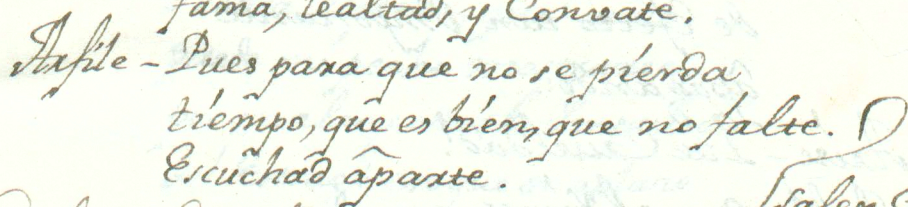 fama, lealtad, y Convate.
Arfile - Pues para que no se pierda
tiempo, que es bien, que no falte.
Escuchad aparte.
Salen